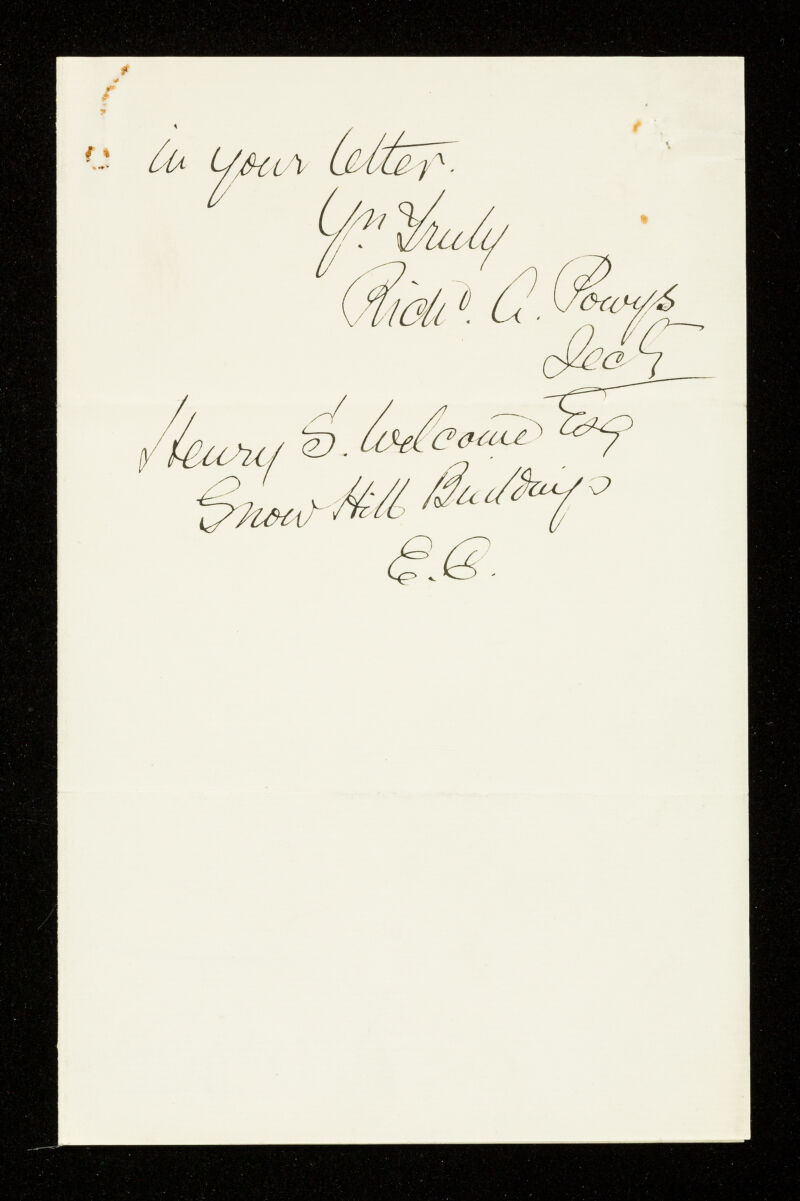 in your letter.
Yrs. Truly
Richd. A. Powys
Secty
Henry S. Welcome Esq
Snow Hill Buildings
E.C.